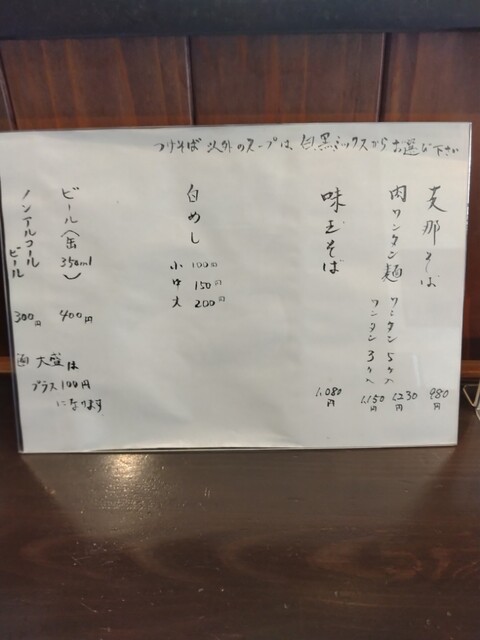 つけそば以外のスープは、白黒ミックスからお選び下さい
支那そば 980円
肉ワンタン麺 ワンタン5ヶ入 1,230円
ワンタン3ヶ入 1,150円
味玉そば 1,080円
白めし
小 100円
中 150円
大 200円
ビール(缶350ml) 400円
ノンアルコールビール 300円
大盛は
プラス100円
になります